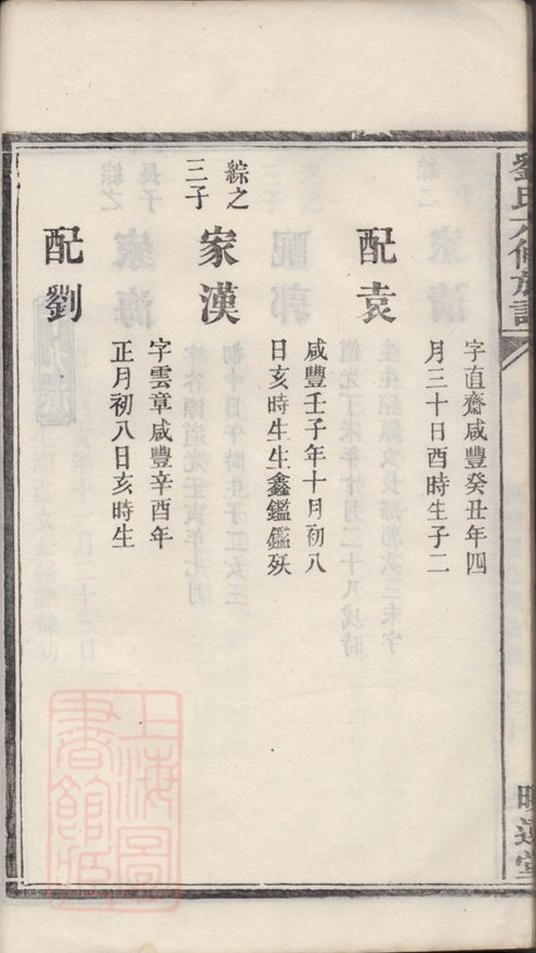 劉氏六修族譜
字直齋咸豐癸丑年四
月三十日酉時生子二
配袁
咸豐壬子年十月初八
日亥時生生鑫鑑鑑殀
綜之
三子
家漢
字雲章咸豐辛酉年
正月初八日亥時生
配劉
上海圖
書館藏